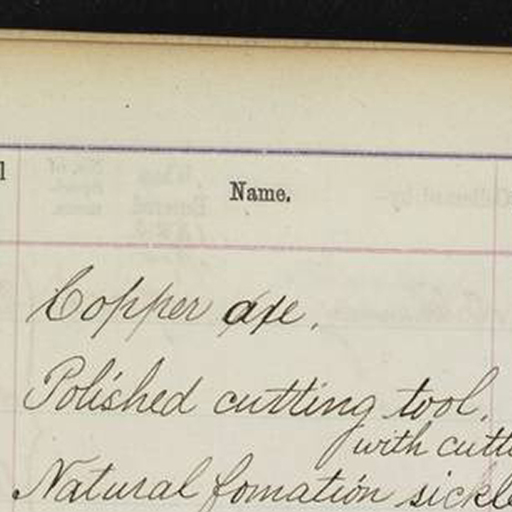 Name.
Copper axe.
Polished cutting tool.
with cutt
Natural fomation sickle